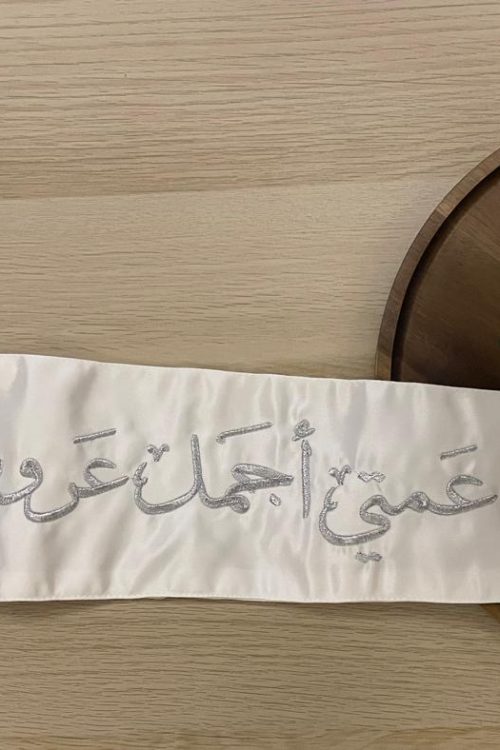 عَمتي أجمَل عَرو